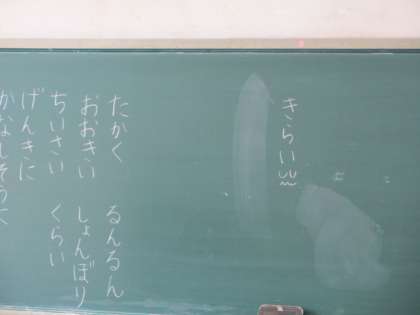 きらい
たかく　るんるん
おおきい　しょんぼり
ちいさい　くらい
げんきに
かなしそうに